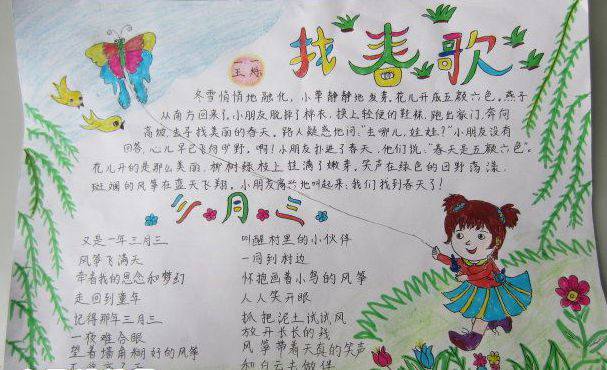 找春歌
冬雪悄悄地融化，小草静静地发芽，花儿开成五颜六色。燕子
从南方回来了。小朋友脱掉了棉衣，换上轻便的鞋袜，跑出家门，奔向
高坡，去寻找美丽的春天。路人疑惑地问："去哪儿，娃娃？"小朋友没有
回答，心儿早已飞向旷野。啊！小朋友扑进了春天，他们说："春天是五颜六色"。
花儿开的是那么美丽，柳树绿枝上挂满了嫩芽。笑声在绿色的田野荡漾，
斑斓的风筝在蓝天飞翔。小朋友高兴地叫起来：我们找到春天了！
三月三
又是一年三月三
风筝飞满天
带着我的思念和梦幻
走回到童年
记得那年三月三
一夜难合眼
望着墙角糊好的风筝
叫醒村里的小伙伴
一同到村边
怀抱画着小鸟的风筝
人人笑开眼
抓把泥土试试风
放开长长的线
风筝带着天真的笑声
和白云去做伴